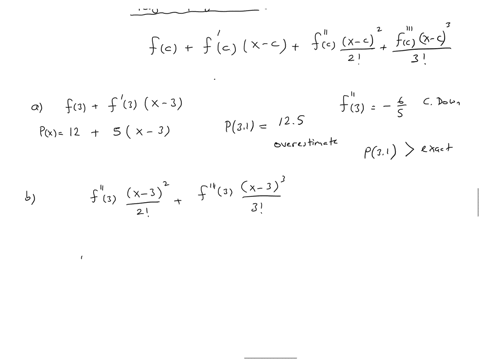 f(c) + f'(c) (x-c) + f''(c) (x-c)²/2! + f'''(c) (x-c)³/3!
a) f(3) + f'(3) (x-3)
f''(3) = - 6/5 C. Down
P(x) = 12 + 5(x-3)
P(3.1) = 12.5
overestimate
P(3.1) > exact
b) f''(3) (x-3)²/2! + f'''(3) (x-3)³/3!